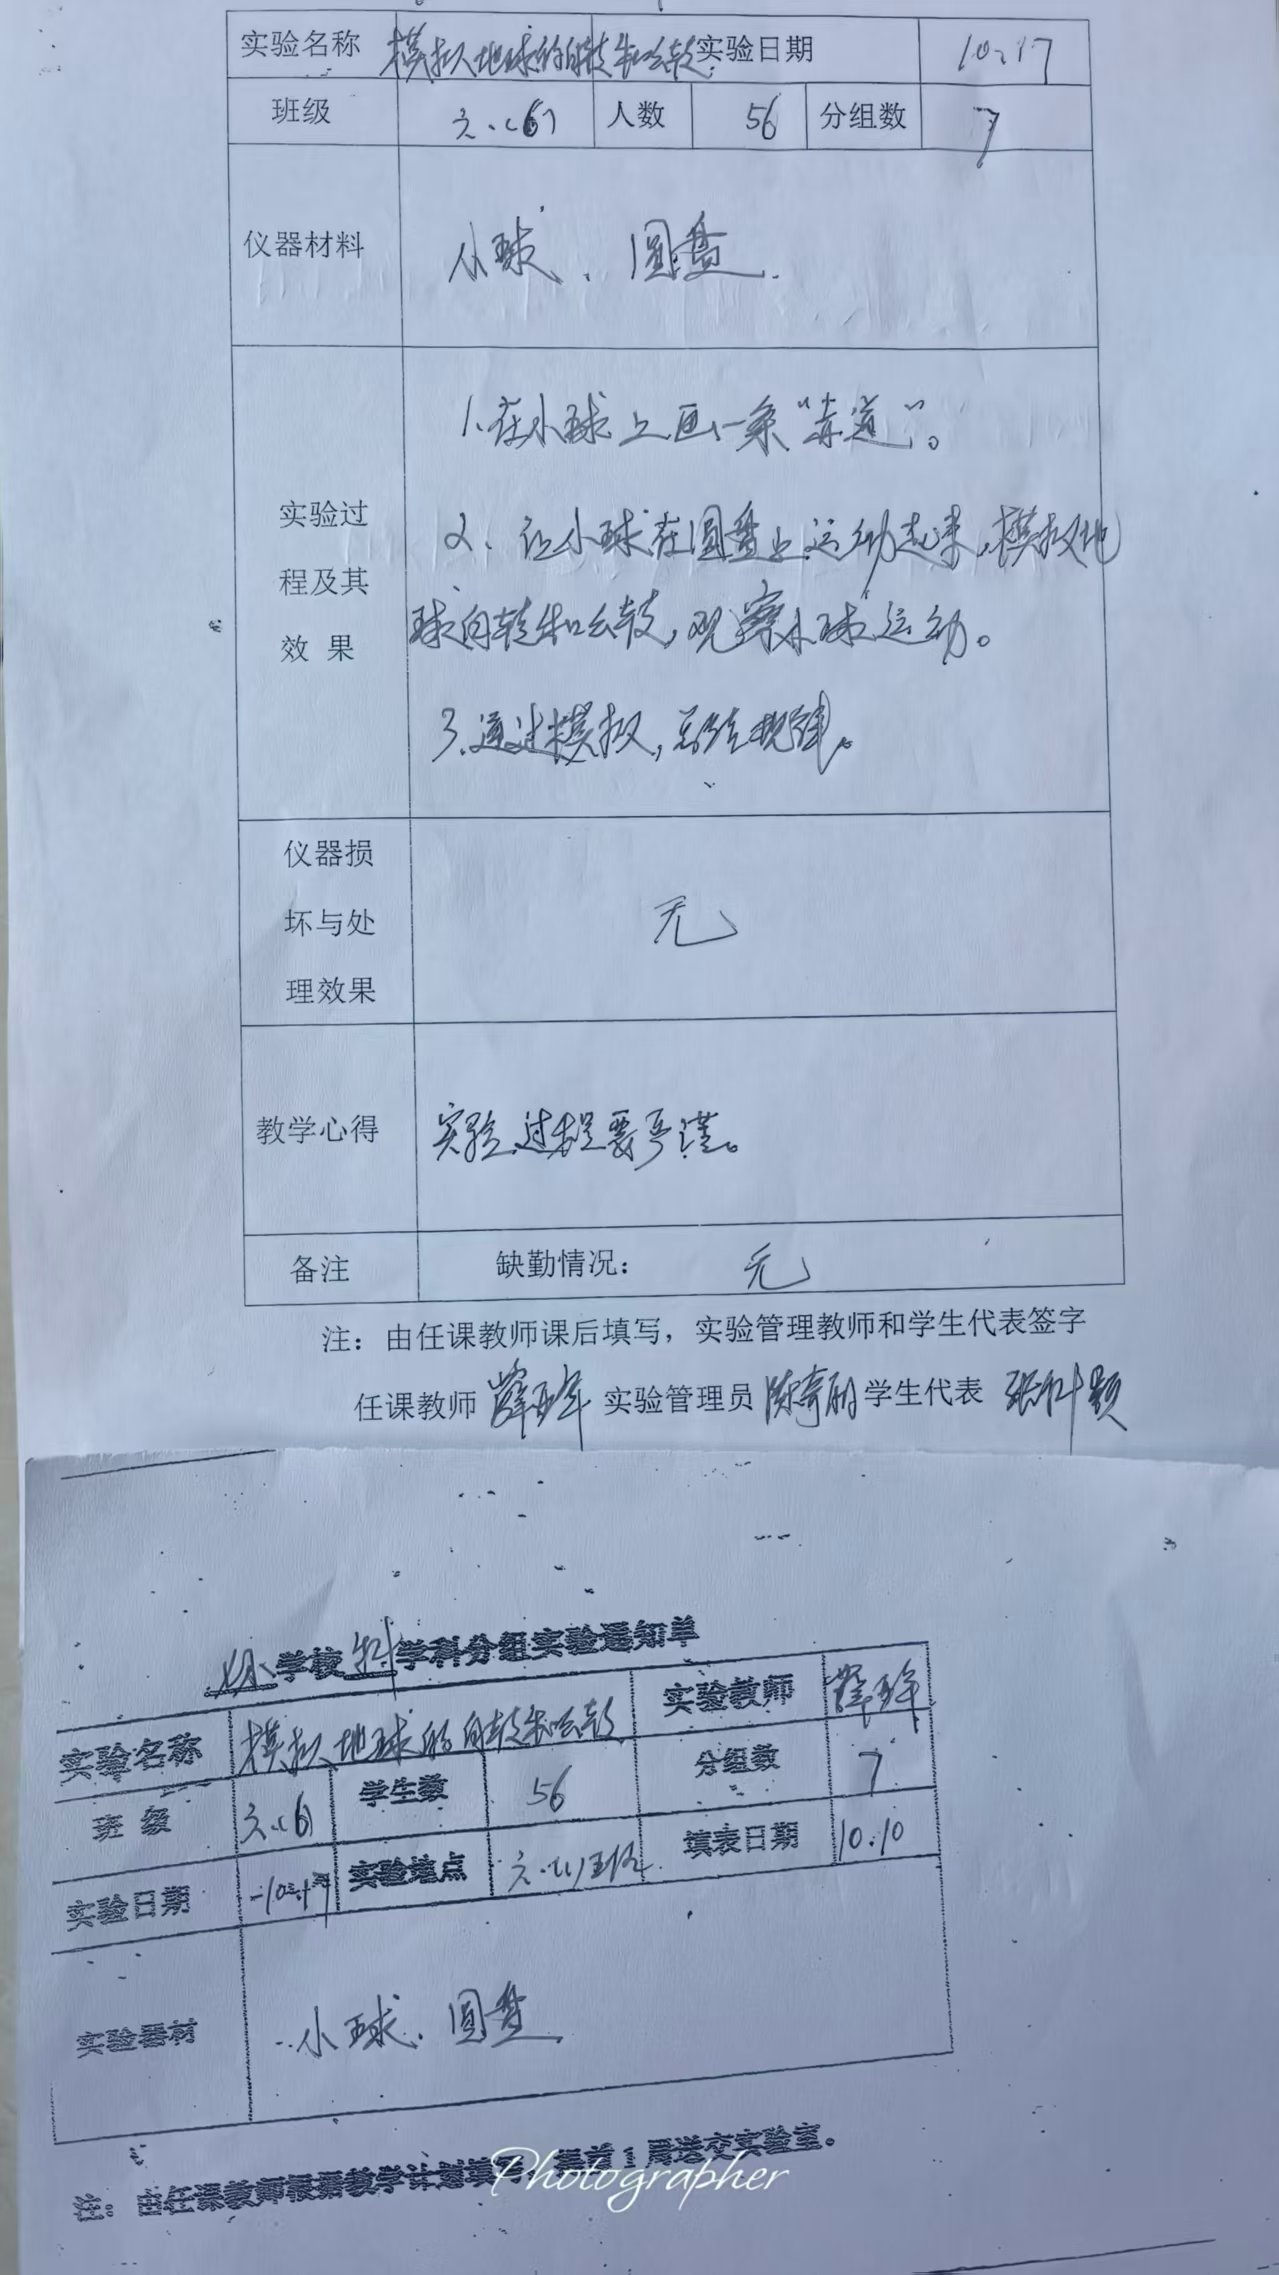 实验名称 模拟地球的自转和公转 实验日期 10.17
班级 六.(6) 人数 56 分组数 7
仪器材料 小球、圆盘.
1.在小球上画一条“赤道”。
实验过程及其效果 2、让小球在圆盘上运动起来,模拟地
球自转和公转,观察小球运动。
3.通过模拟,总结规律。
仪器损坏与处理效果 无
教学心得 实验过程要严谨。
备注 缺勤情况: 无
注:由任课教师课后填写,实验管理教师和学生代表签字
任课教师 实验管理员 学生代表
学校 科 学科分组实验通知单
实验名称 模拟地球的自转和公转 实验教师
班 级 六.(6) 学生数 56 分组数 7
实验日期 10.17 实验地点 填表日期 10.10
实验器材 小球、圆盘
注:由任课教师根据教学计划填写,提前1周送交实验室。
Photographer